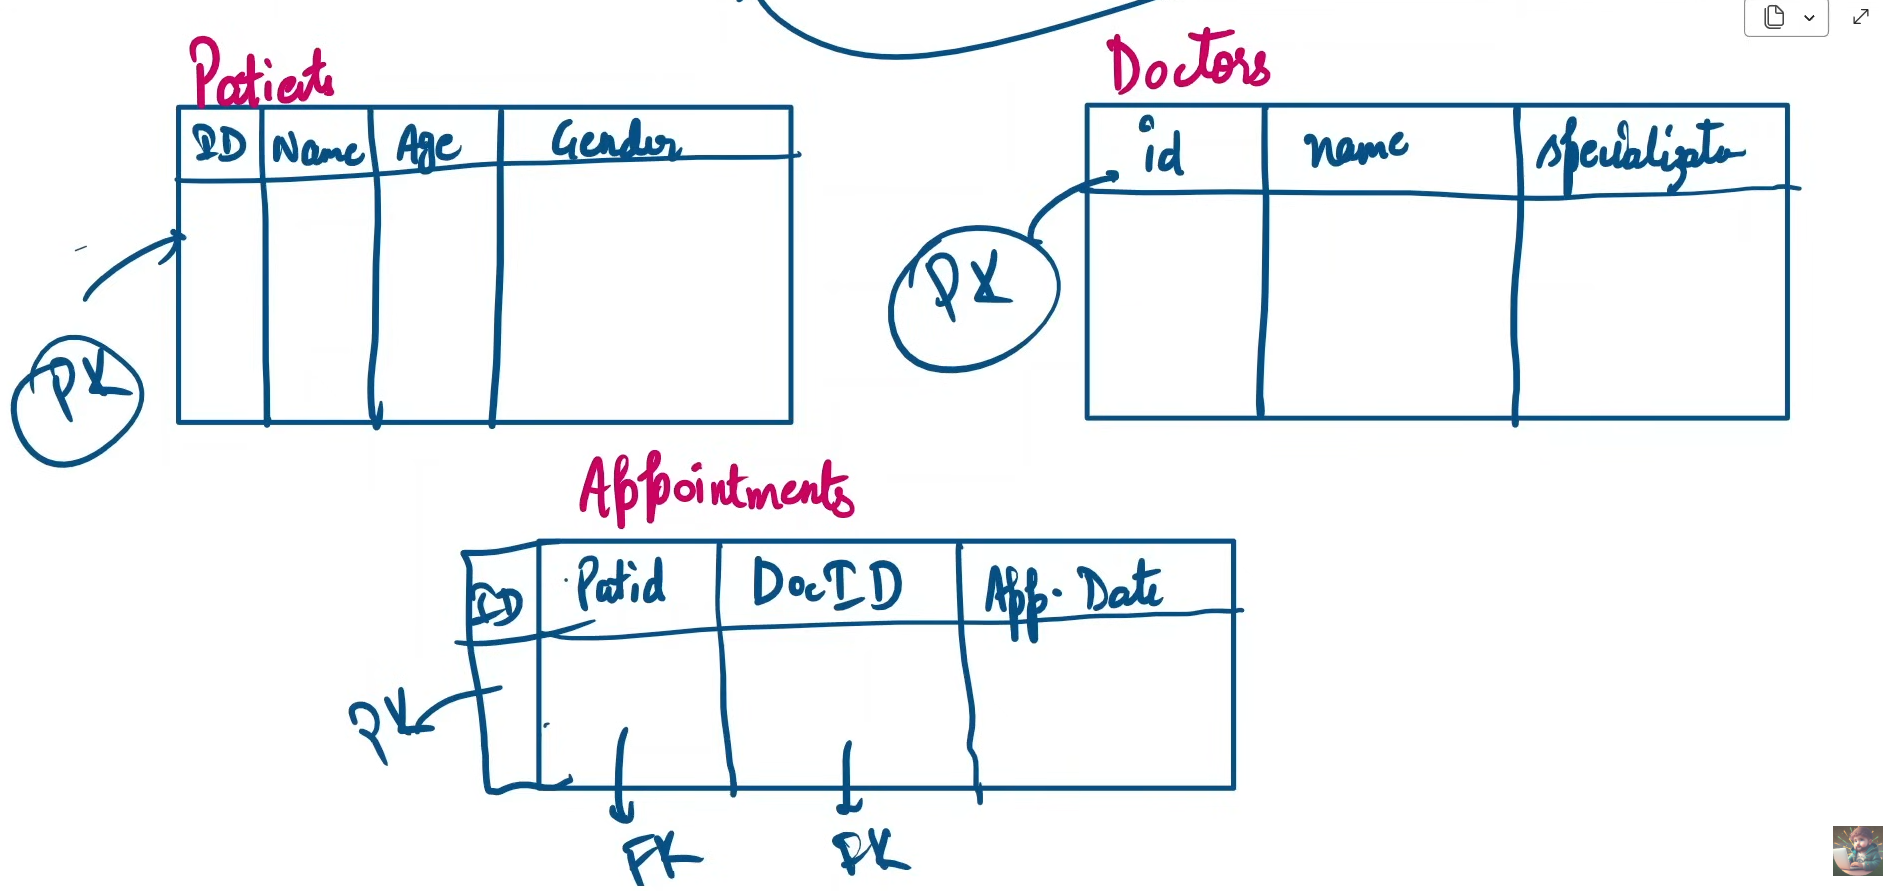 Patients
ID Name Age Gender
PK
Doctors
id name specialization
PK
Appointments
ID Patid DocID App. Date
PK
FK
FK